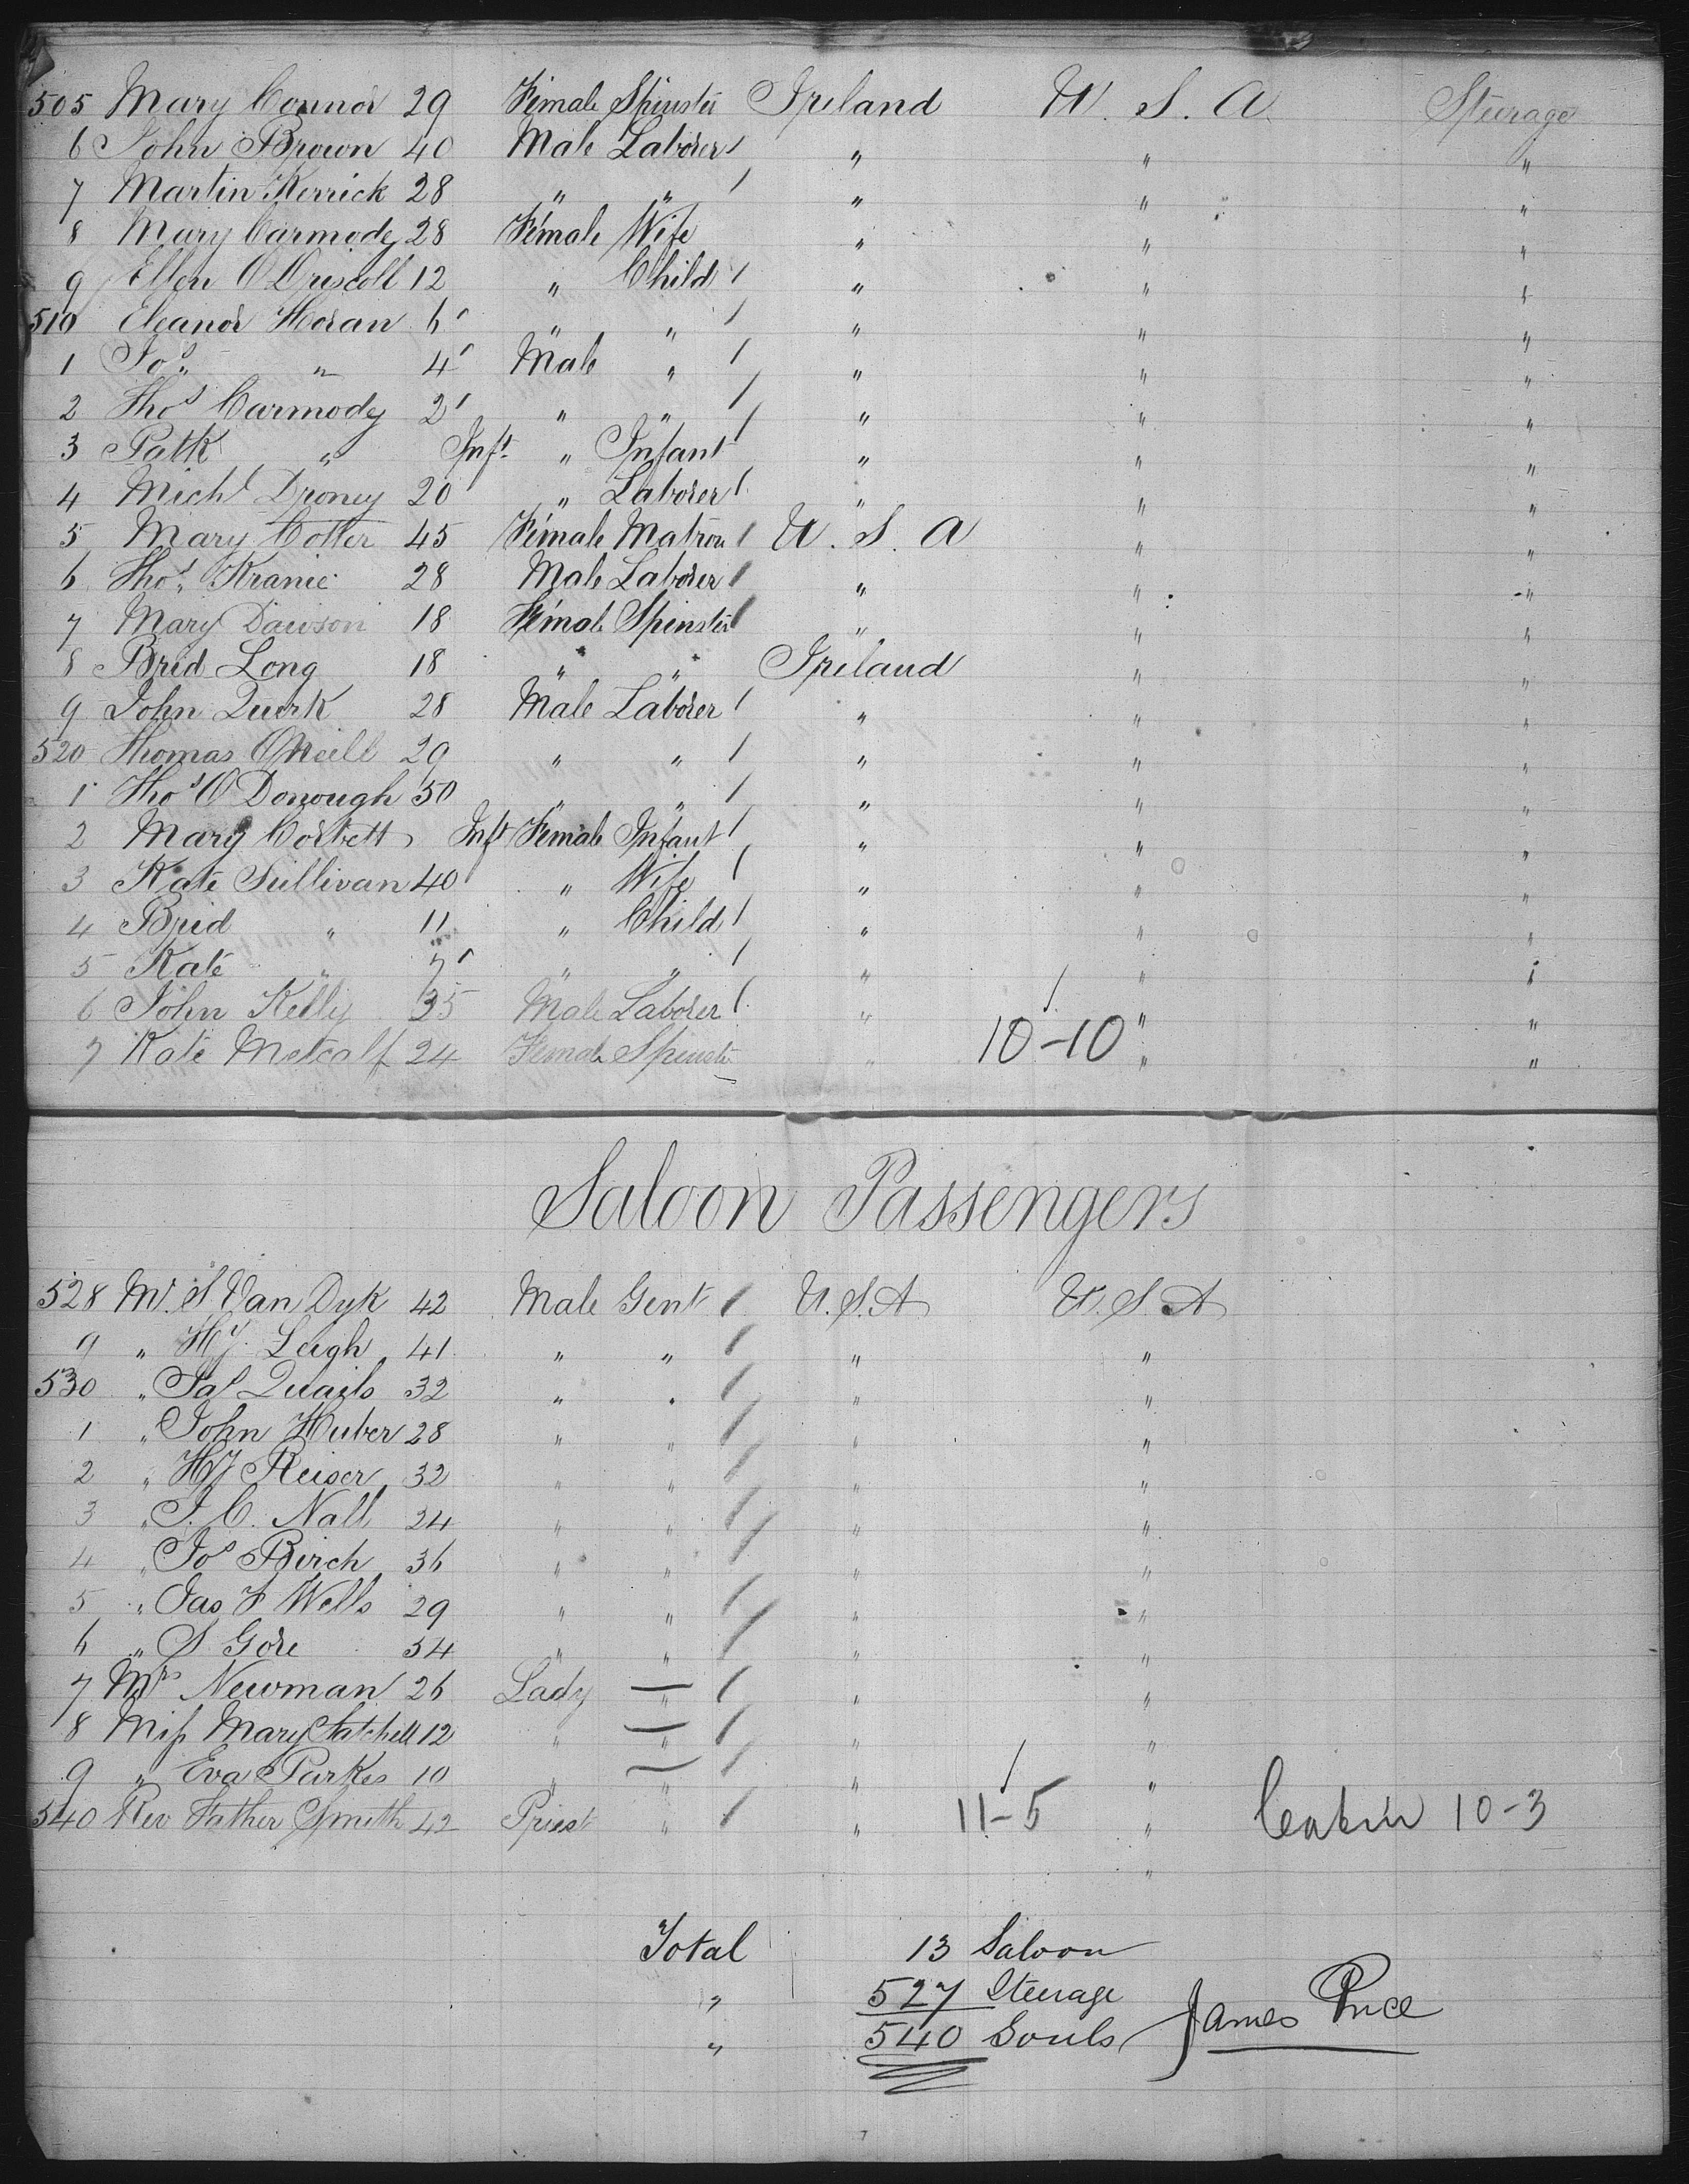 505 Mary Connor 29 Female Spinster Ireland U. S. A. Steerage
6 John Brown 40 Male Laborer " " "
7 Martin Kerrick 28 " " " " "
8 Mary Carmody 28 Female Wife " " "
9 Ellen O Driscoll 12 " Child " " "
510 Eleanor Horan 6 " " " " "
1 Jos " 4 Male " " " "
2 Thos Carmody 2 " " " " "
3 Patk " Inft " Infant " " "
4 Michl Droney 20 " Laborer " " "
5 Mary Cotter 45 Female Matron U. S. A " "
6 Thos Kranie 28 Male Laborer " " "
7 Mary Dawson 18 Female Spinster " " "
8 Brid Long 18 " " Ireland " "
9 John Quirk 28 Male Laborer " " "
520 Thomas O'Neill 29 " " " " "
1 Thos O Donough 50 " " " " "
2 Mary Corbett Inft Female Infant " " "
3 Kate Sullivan 40 " Wife " " "
4 Brid " 11 " Child " " "
5 Kate " 7 " " " " "
6 John Kelly 35 Male Laborer " " "
7 Kate Metcalf 24 Female Spinster " 10-10 " "
Saloon Passengers
528 Mr. S Van Dyk 42 Male Gent U.S.A U.S.A
9 " Hy. Leigh 41 " " " "
530 " Jas Quails 32 " " " "
1 " John Huber 28 " " " "
2 " Hy Reiser 32 " " " "
3 " J. C. Nall 24 " " " "
4 " Jos Birch 36 " " " "
5 " Jas F Wells 29 " " " "
6 " S Gore 34 " " " "
7 Mrs Newman 26 Lady — " " "
8 Miss Mary Satchell 12 " — " " "
9 " Eva Parkes 10 " — " " "
540 Rev Father Smith 42 Priest " " 11-5 " Cabin 10-3
"
Total 13 Saloon
" 527 Steerage
" 540 Souls James Price